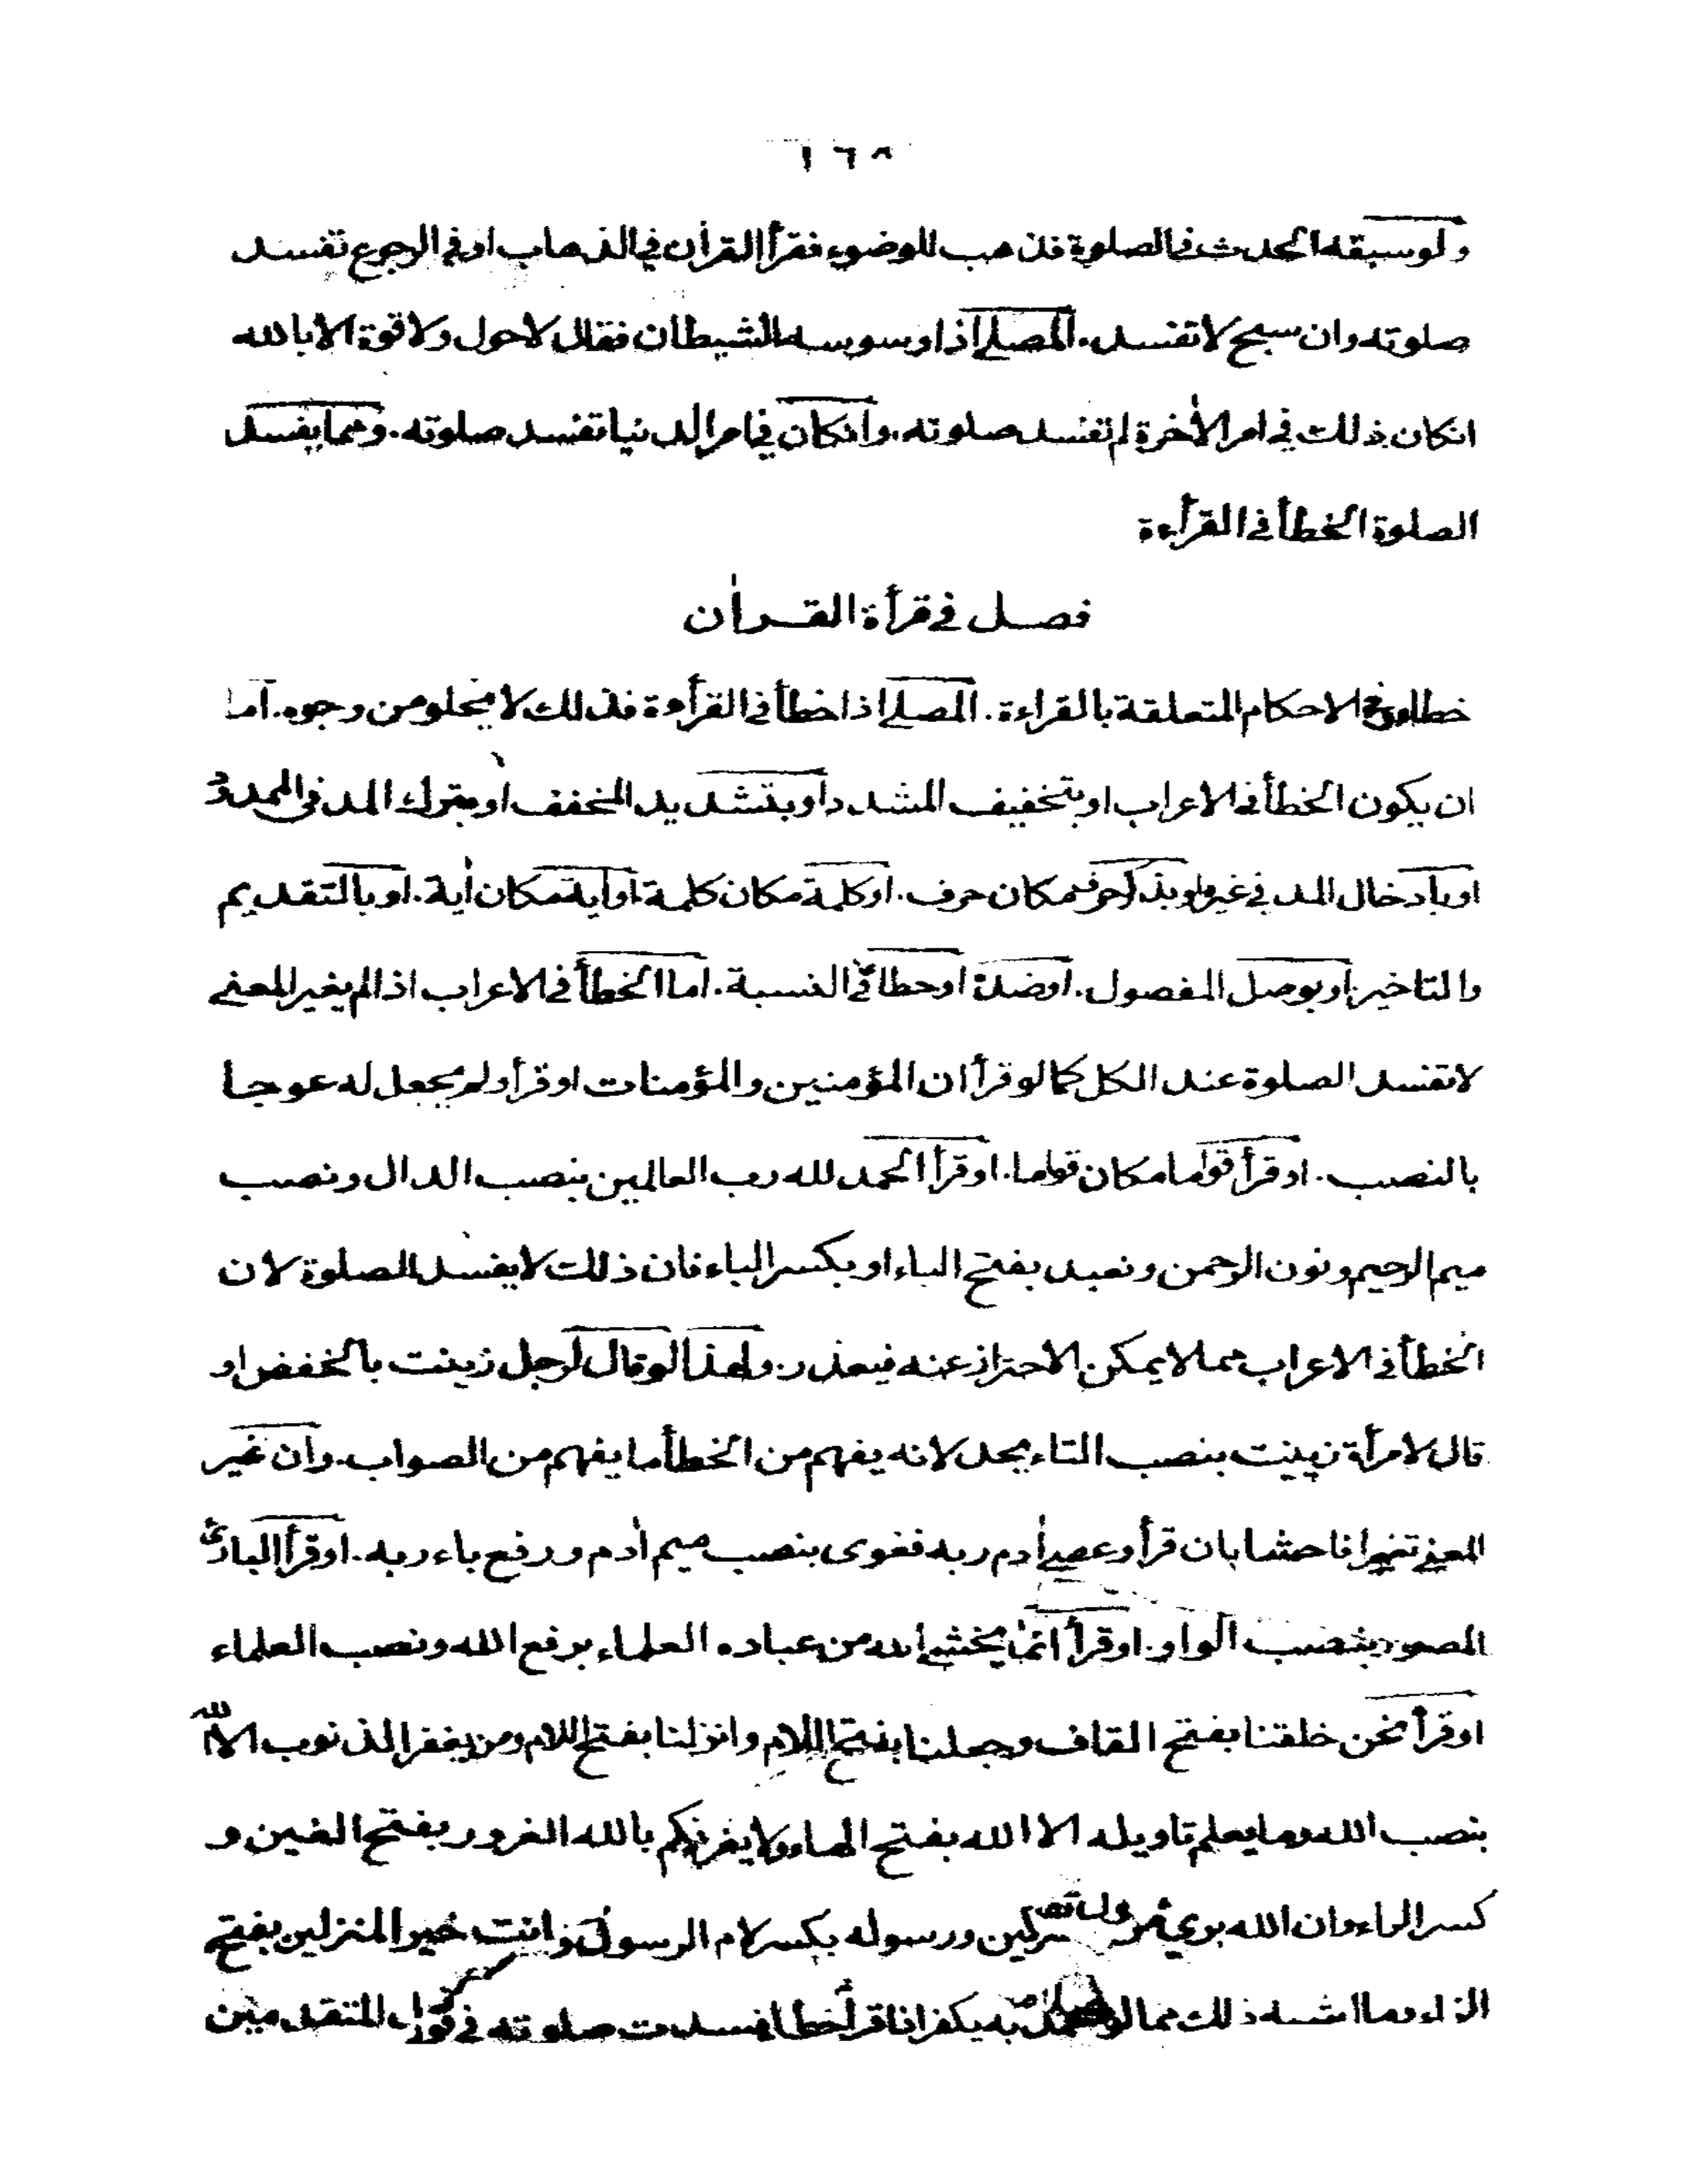 ١٦٨
ولو سبقه الحدث في الصلوة فذهب للوضوء فقرأ القرأن في الذهاب او في الرجوع تفسد
صلوته وان سبح لا تفسد. المصلے اذا وسوسه الشيطان فقال لاحول ولا قوة الا بالله
انكان ذلك في امر الأخرة لم تفسد صلوته. وانكان في امر الدنيا تفسد صلوته. ومما يفسد
الصلوة الخطأ في القرأءة
فصل في قرأة القرأن
خطاء وفي الاحكام المتعلقة بالقراءة. المصلے اذا اخطأ في القرأءة فذلك لا يخلو من وجوه. اما
ان يكون الخطأ في الاعراب او بتخفيف المشدد او بتشديد المخفف او بترك المد في الممدود
او بادخال المد في غيره او بذكر حرف مكان حرف. او كلمة مكان كلمة او أية مكان أية. او بالتقديم
والتاخير او بوصل المفصول. او ضده او خطأ في النسبة. اما الخطأ في الاعراب اذا لم يغير المعنے
لا تفسد الصلوة عند الكل كما لو قرأ ان المؤمنين والمؤمنات او قرأ ولم يجعل له عوجا
بالنصب. او قرأ قواما مكان قواما. او قرأ الحمد لله رب العالمين بنصب الدال ونصب
ميم الرحيم ونون الرحمن ونعبد بفتح الباء او بكسر الباء فان ذلك لا يفسد الصلوة لان
الخطأ في الاعراب مما لا يمكن الاحتراز عنه فيعذر. ولهذا لو قال لرجل زينت بالخفض او
قال لامرأة زنيت بنصب التاء يحد لانه يفهم من الخطأ ما يفهم من الصواب. وان غير
المعنے تغيرا فاحشا بان قرأ وعصے أدم ربه فغوى بنصب ميم أدم ورفع باء ربه. او قرأ البارئ
المصور بنصب الواو. او قرأ انما يخشے الله من عباده العلماء برفع الله ونصب العلماء
او قرأ نحن خلقنا بفتح القاف وجعلنا بفتح اللام وانزلنا بفتح اللام ومن يغفر الذنوب الا الله
بنصب الله وما يعلم تاويله الا الله بفتح الهاء ولا يغرنكم بالله الغرور بفتح الغين و
كسر الراء وان الله برئ من المشركين ورسوله بكسر لام الرسول وانت خير المنزلين بفتح
الزاء وما اشبه ذلك مما لو تعمد به يكفر اذا قرأ خطأ فسدت صلوته في قول المتقدمين